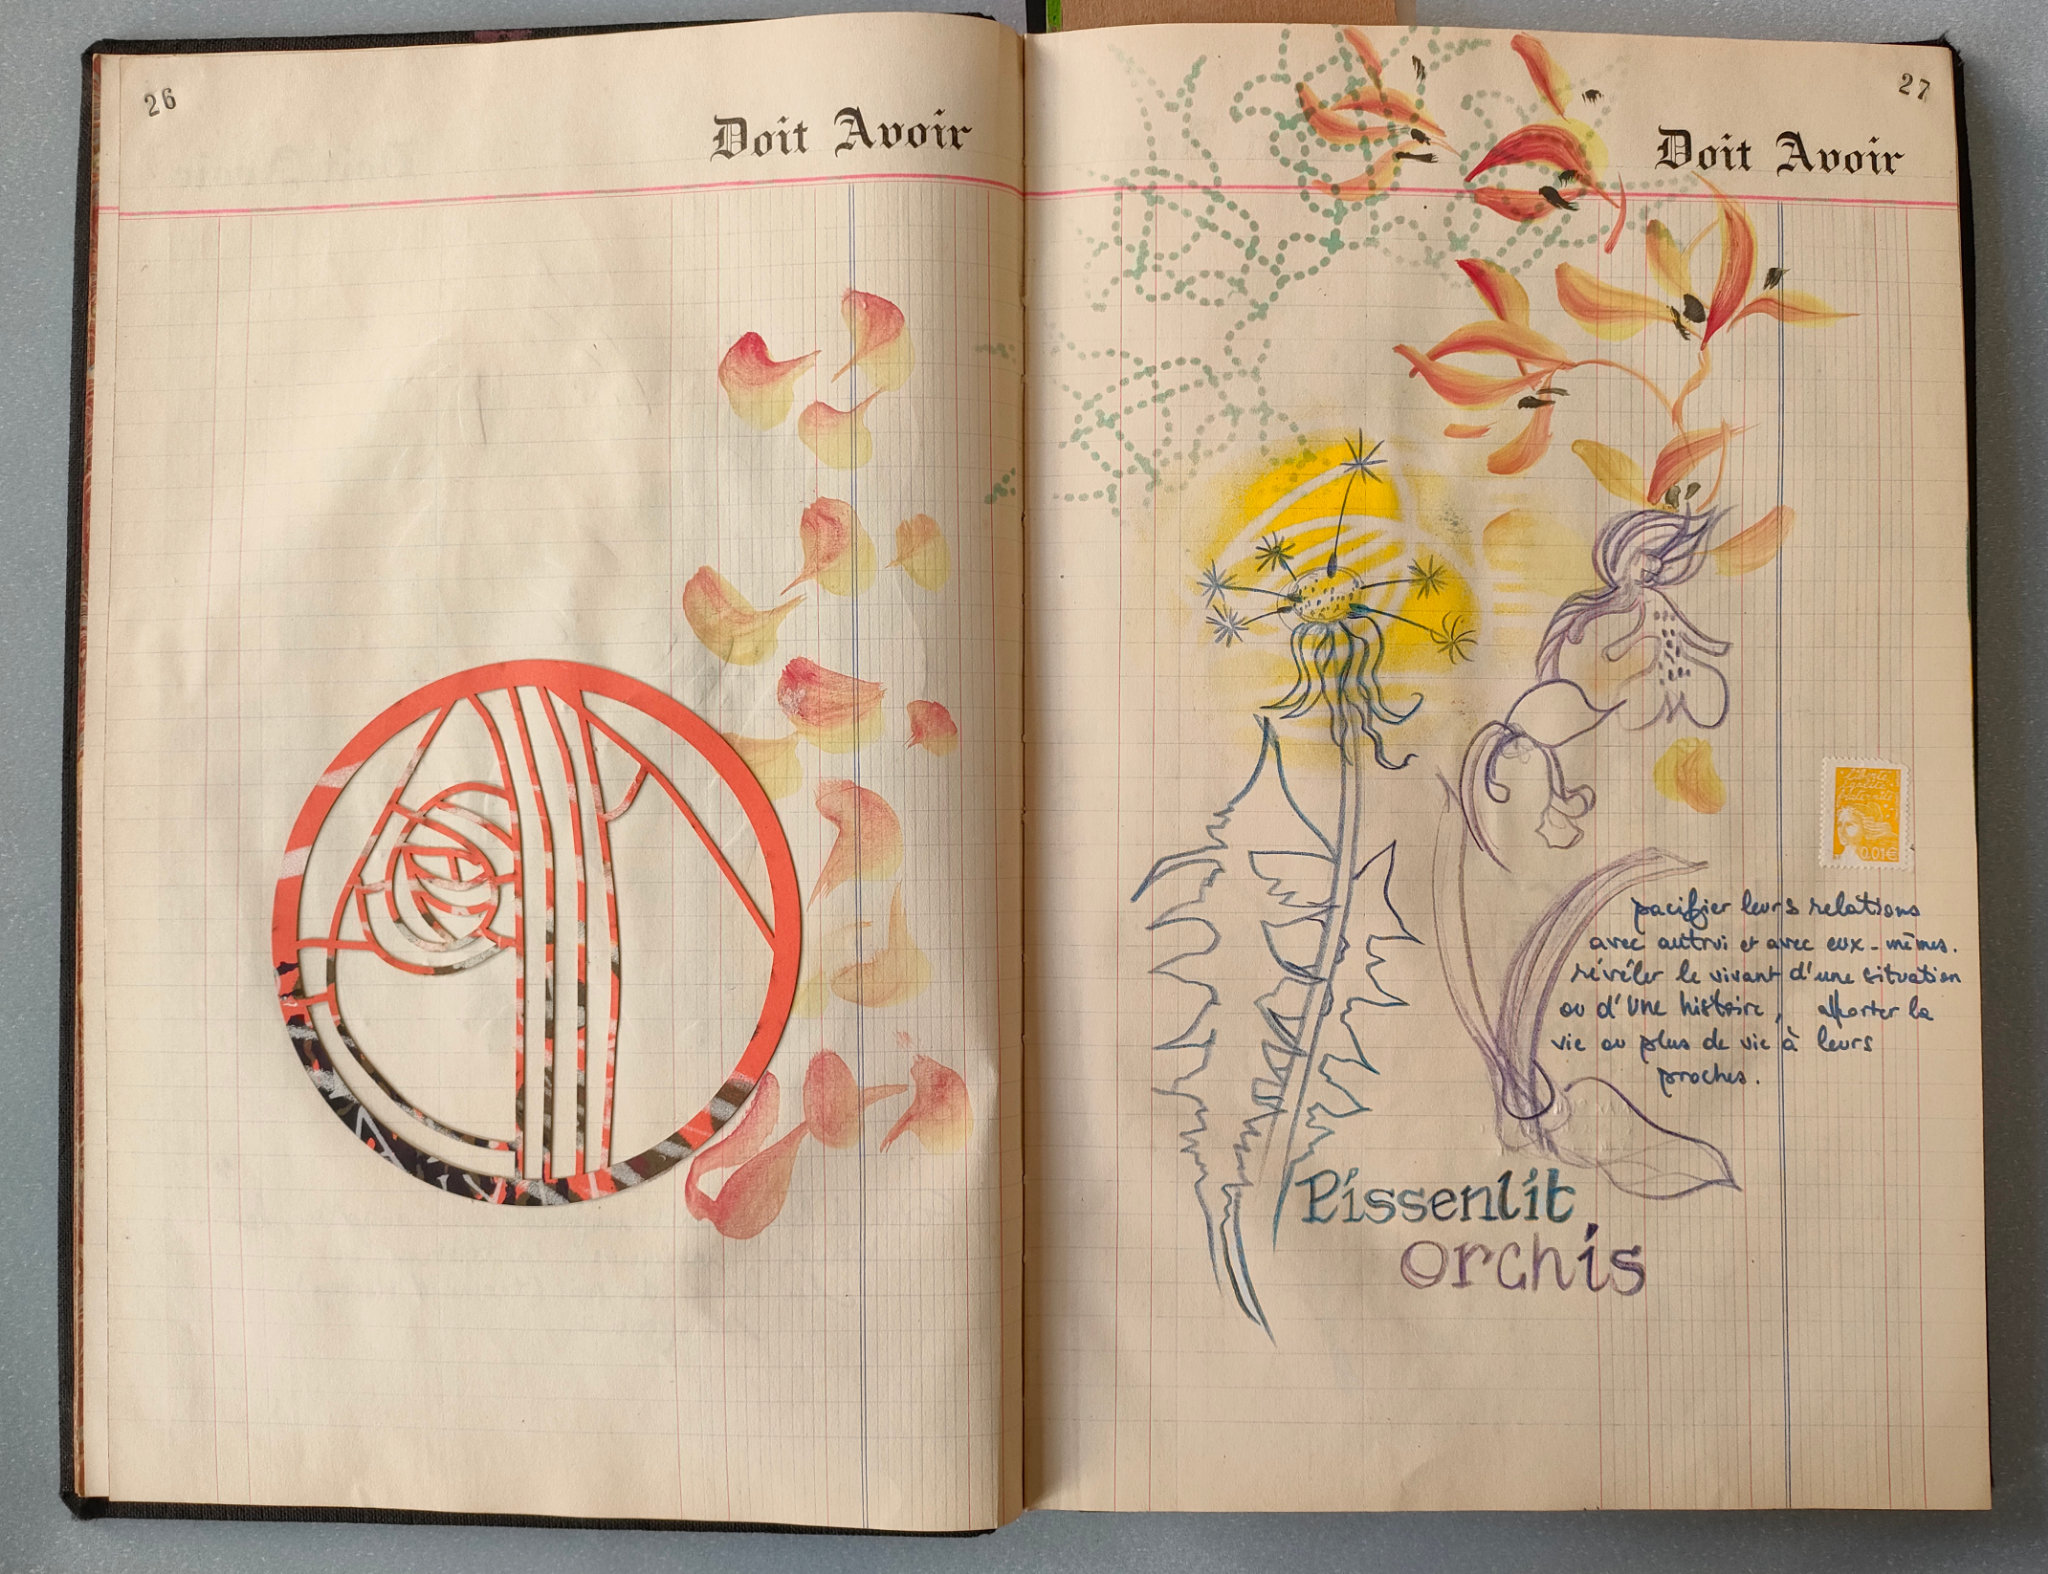 26
Doit Avoir
27
Doit Avoir
liberté
égalité
fraternité
0.01€
pacifier leurs relations
avec autrui et avec eux-mêmes.
révéler le vivant d'une situation
ou d'une histoire, apporter la
vie ou plus de vie à leurs
proches.
Pissenlit
orchis